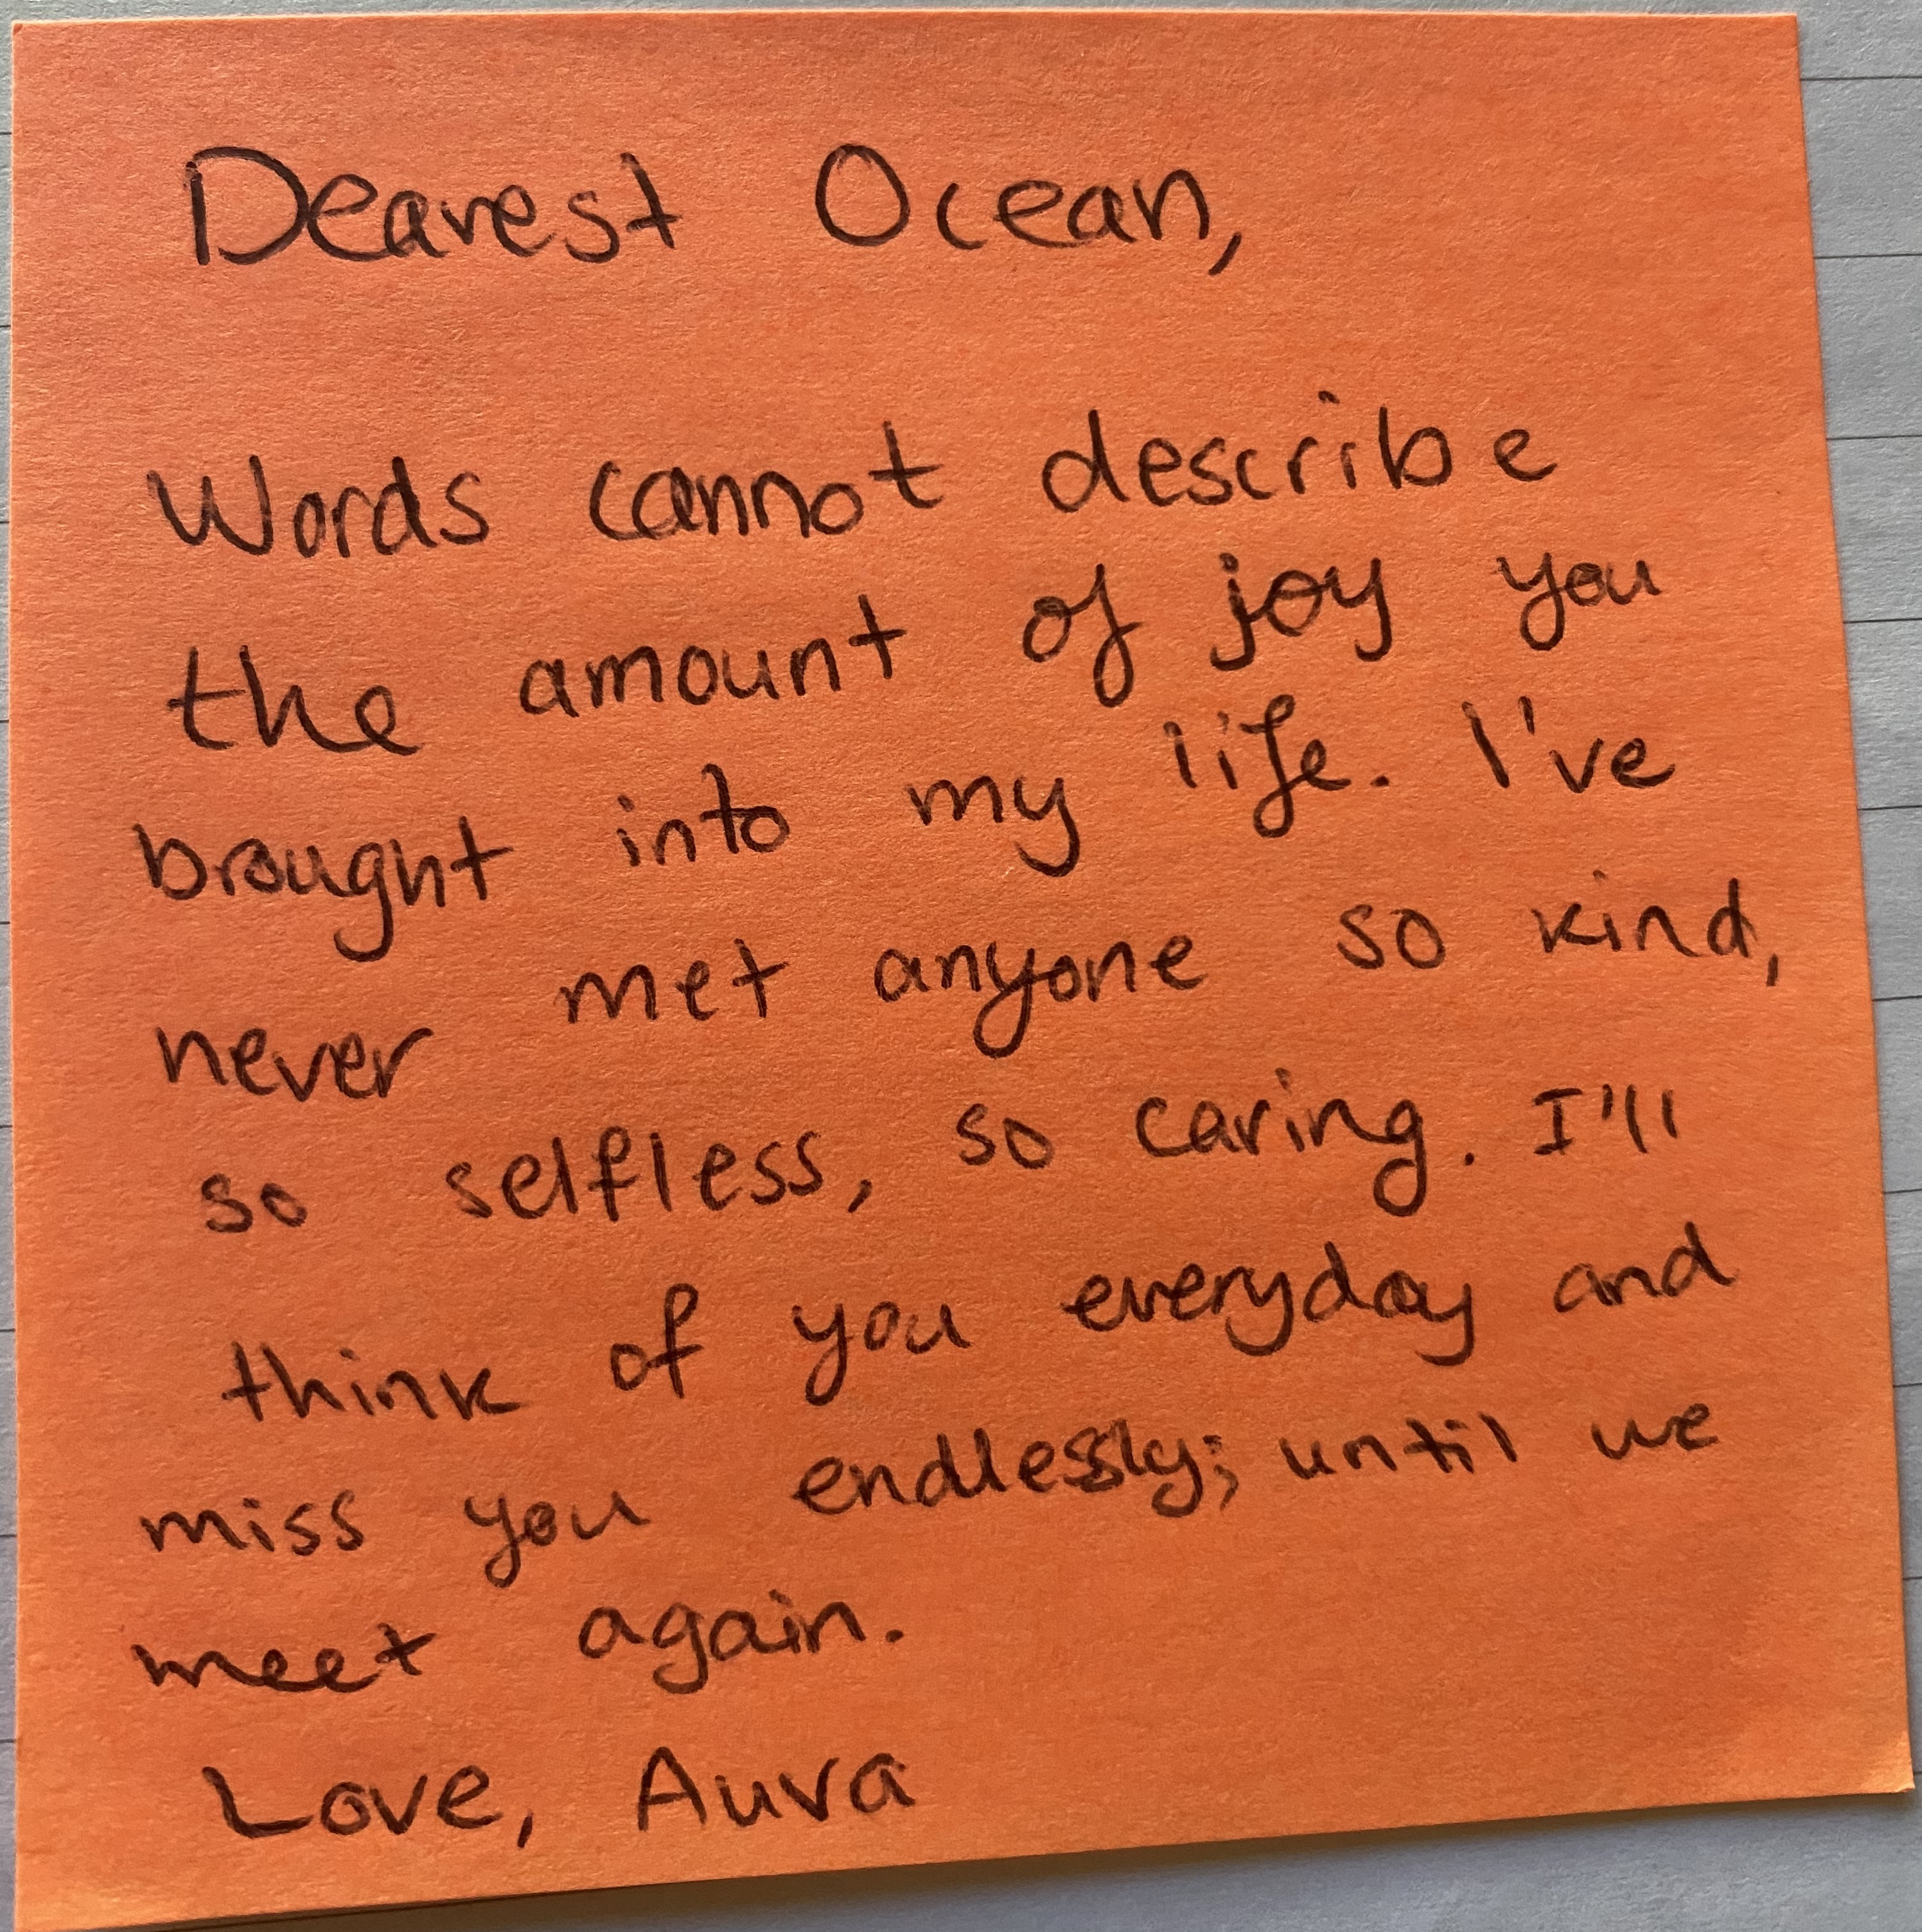 Dearest Ocean,
Words cannot describe
the amount of joy you
brought into my life. I've
never met anyone so kind,
so selfless, so caring. I'll
think of you everyday and
miss you endlessly; until we
meet again.
Love, Auva